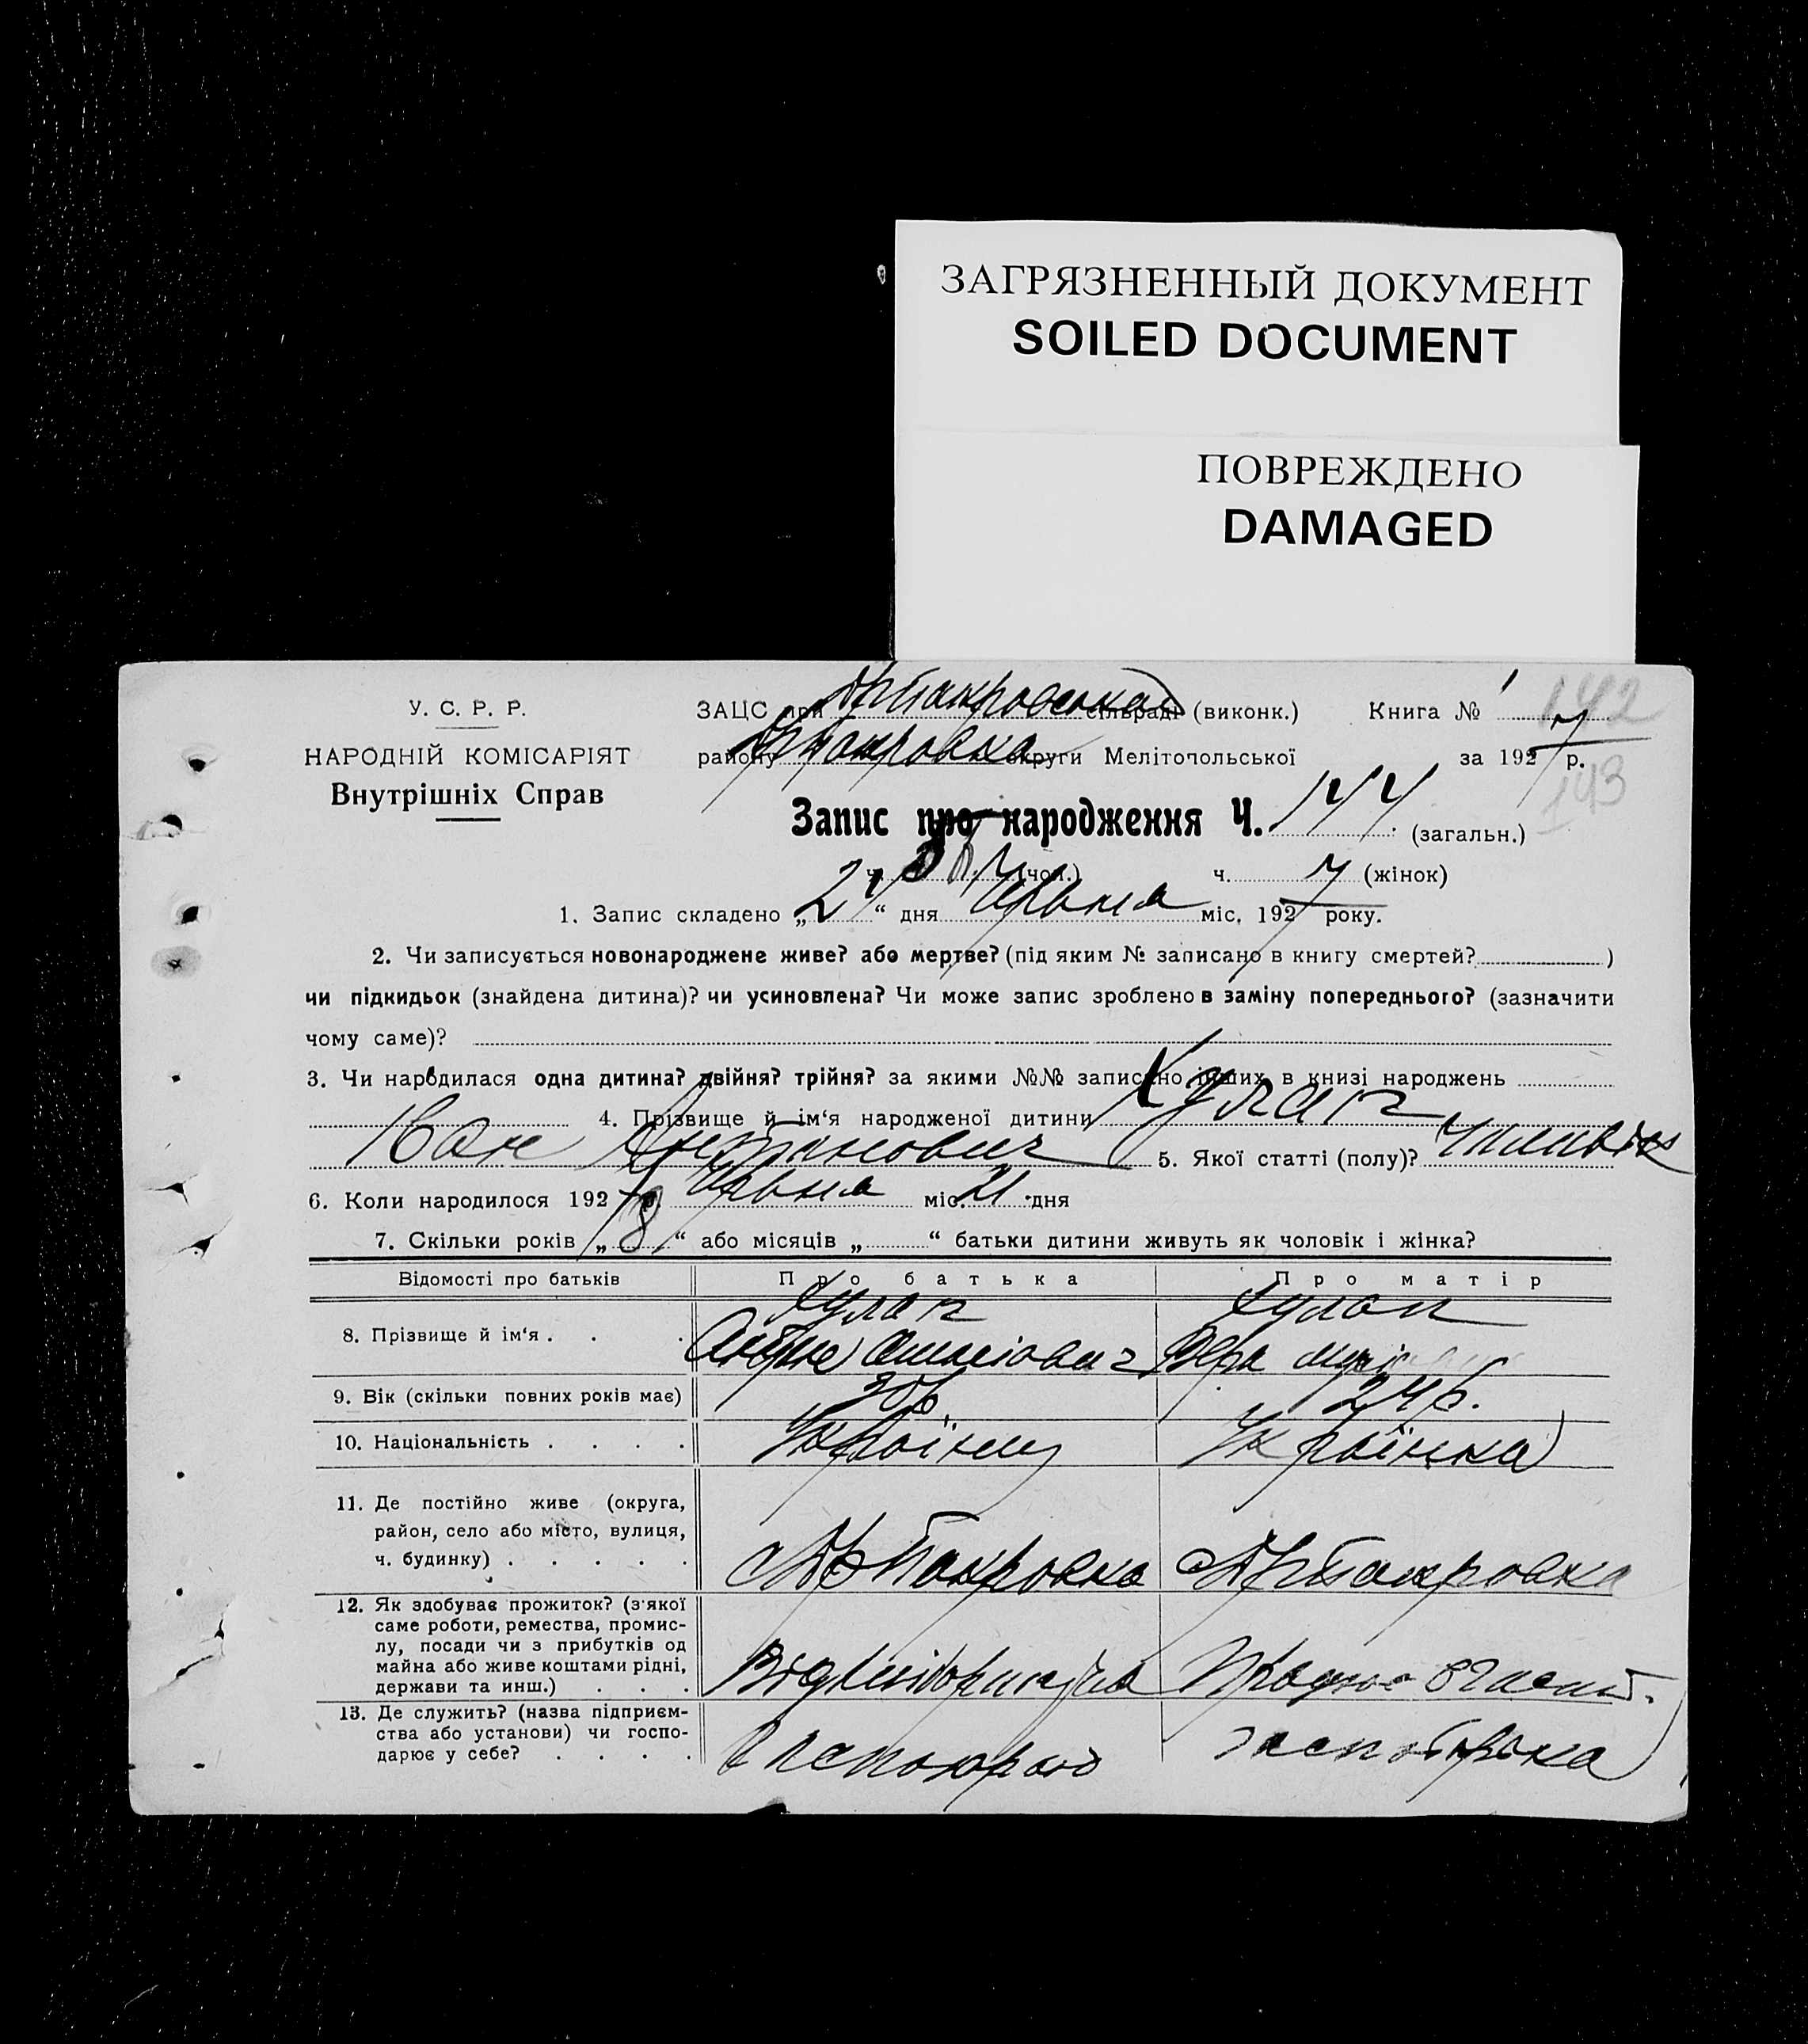 ЗАГРЯЗНЕННЫЙ ДОКУМЕНТ
SOILED DOCUMENT
ПОВРЕЖДЕНО
DAMAGED
У. С. Р. Р.
НАРОДНІЙ КОМІСАРІЯТ
Внутрішніх Справ
ЗАЦС при сільраді (виконк.) Книга № 1 142
району округи Мелітопольської за 1927 р.
143
Запис про народження Ч. 144 (загальн.)
ч. (чол.) ч. (жінок)
1. Запис складено „24“ дня Червня міс. 1927 року.
2. Чи записується новонароджене живе? або мертве? (під яким № записано в книгу смертей? )
чи підкидьок (знайдена дитина)? чи усиновлена? Чи може запис зроблено в заміну попереднього? (зазначити
чому саме)?
3. Чи народилася одна дитина? двійня? трійня? за якими №№ записано інших в книзі народжень
4. Прізвище й ім‘я народженої дитини Кулак
Іван Антонович 5. Якої статті (полу)?
6. Коли народилося 1927 р. Червня міс. 21 дня
7. Скільки років „8“ або місяців „ “ батьки дитини живуть як чоловік і жінка?
Відомості про батьків Про батька Про матір
8. Прізвище й ім‘я . . . Кулак Кулак
Антон Вера
9. Вік (скільки повних років має) 30 р. 24 р.
10. Національність . . . . Українец Українка
11. Де постійно живе (округа,
район, село або місто, вулиця,
ч. будинку) . . . . .
12. Як здобуває прожиток? (з'якої
саме роботи, ремества, промис-
лу, посади чи з прибутків од
майна або живе коштами рідні,
держави та инш.) . . .
13. Де служить? (назва підприєм-
ства або установи) чи госпо-
дарює у себе? . . . .